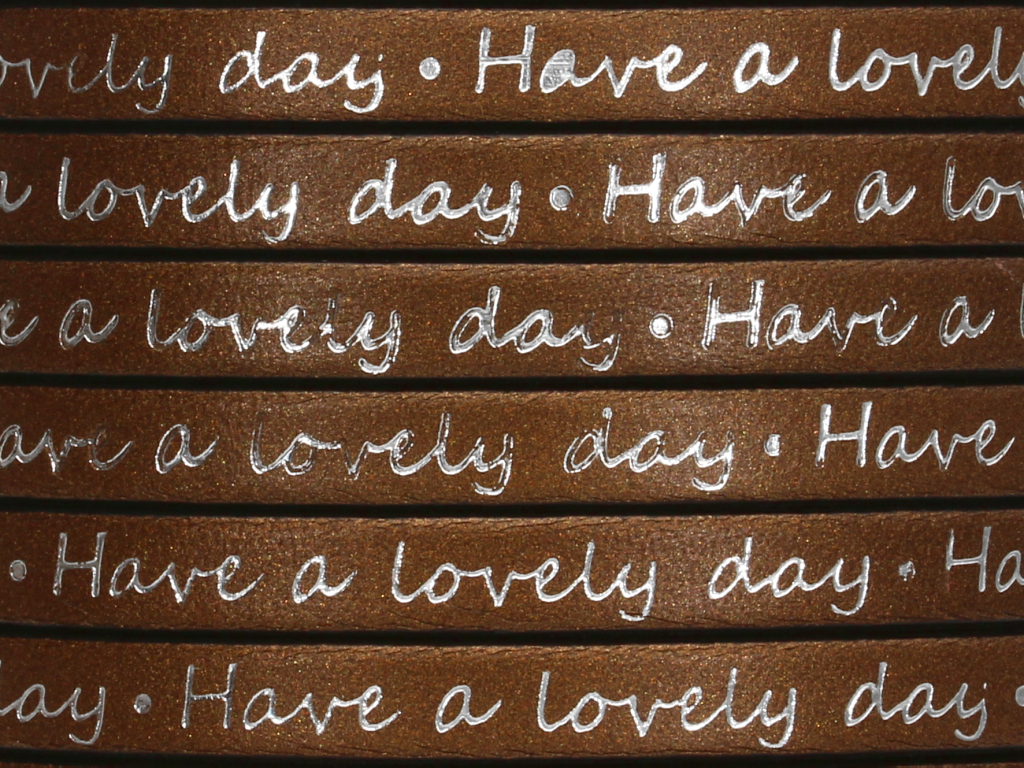 ovely day • Have a lovely
a lovely day • Have a lov
e a lovely day • Have a l
ave a lovely day • Have
• Have a lovely day • Ha
day • Have a lovely day •